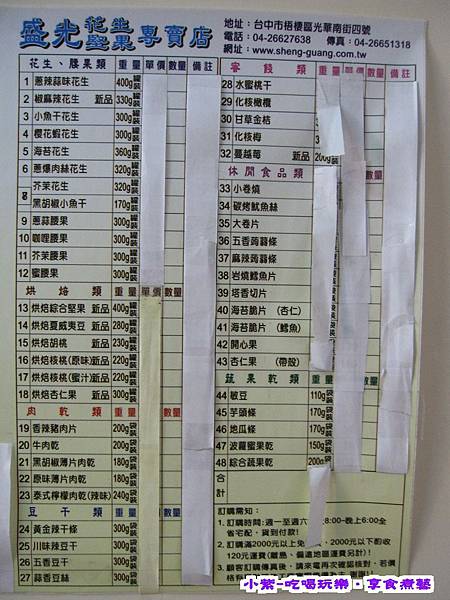 盛光 花生堅果 專賣店
地址：台中市梧棲區光華南街四號
電話：04-26627638 傳真：04-26651318
網址：www.sheng-guang.com.tw
花生、腰果類 重量 單價 數量 備註
1 蔥辣蒜味花生 400g 罐裝
2 椒麻辣花生 新品 330g 罐裝
3 小魚干花生 300g 罐裝
4 櫻花蝦花生 300g 罐裝
5 海苔花生 360g 罐裝
6 蔥爆肉絲花生 320g 罐裝
芥茉花生 320g 罐裝
8 黑胡椒小魚干 170g 罐裝
9 蔥蒜腰果 300g 罐裝
10 咖哩腰果 300g 罐裝
11 芥茉腰果 300g 罐裝
12 蜜腰果 300g 罐裝
烘焙類 重量 單價 數量
13 烘焙綜合堅果 新品 400g 罐裝
14 烘焙夏威夷豆 新品 280g 罐裝
15 烘焙胡桃 新品 230g 罐裝
16 烘焙核桃(原味)新品 220g 罐裝
17 烘焙核桃(蜜汁)新品 220g 罐裝
18 烘焙杏仁果 新品 300g 罐裝
肉乾類 重量 數量
19 香辣豬肉片 200g 袋裝
20 牛肉乾 200g 袋裝
21 黑胡椒薄片肉乾 180g 袋裝
22 原味薄片肉乾 180g 袋裝
23 泰式檸檬肉乾(辣味) 240g 袋裝
豆干類 重量 數量
24 黃金辣干條 300g 袋裝
25 川味辣豆干 300g 袋裝
26 五香豆干 300g 袋裝
27 蒜香豆絲 300g 袋裝
蜜餞類 重量 單價 數量 備註
28 水蜜桃干
29 化核橄欖
30 甘草金桔
31 化核梅
32 蔓越莓 新品 200g
休閒食品類
33 小卷燒
34 碳烤魷魚絲
35 大卷片
36 五香蒟蒻條
37 麻辣蒟蒻條
38 岩燒鱈魚片
39 塔香切片
40 海苔脆片 (杏仁)
41 海苔脆片 (鱈魚)
42 開心果
43 杏仁果 (帶殼)
蔬果乾類 重量 數量
44 敏豆 110g 袋裝
45 芋頭條 170g 袋裝
46 地瓜條 170g 袋裝
47 波蘿蜜果乾 150g 袋裝
48 綜合蔬果乾 200g
合計
訂購需知：
1. 訂購時間:週一至週六 8:00~晚上6:00全
省宅配，貨到付款!
2. 訂購滿2000元以上免 2000元以下酌收
120元運費(離島、偏遠地區運費另計)!
3. 顧客訂購傳真後，請來電再次確認核對，若價
小紫~吃喝玩樂‧享食煮藝